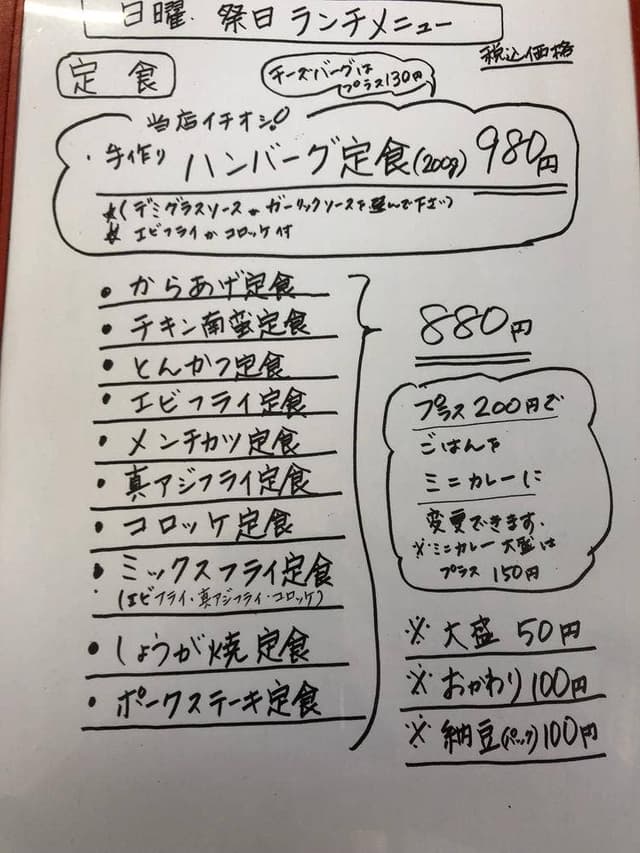 日曜. 祭日 ランチメニュー
税込価格
定 食
チーズバーグは
プラス130円
当店イチオシ!
・手作り ハンバーグ定食(200g) 980円
★(デミグラスソース か ガーリックソースを選んで下さい)
★ エビフライか コロッケ付
• からあげ定食
• チキン南蛮定食
• とんかつ定食
• エビフライ定食
• メンチカツ定食
• 真アジフライ定食
• コロッケ定食
• ミックスフライ定食
(エビフライ・真アジフライ・コロッケ)
• しょうが焼定食
• ポークステーキ定食
880円
プラス200円で
ごはんを
ミニカレーに
変更できます.
※ミニカレー大盛は
プラス 150円
※ 大盛 50円
※ おかわり100円
※ 納豆(パック)100円